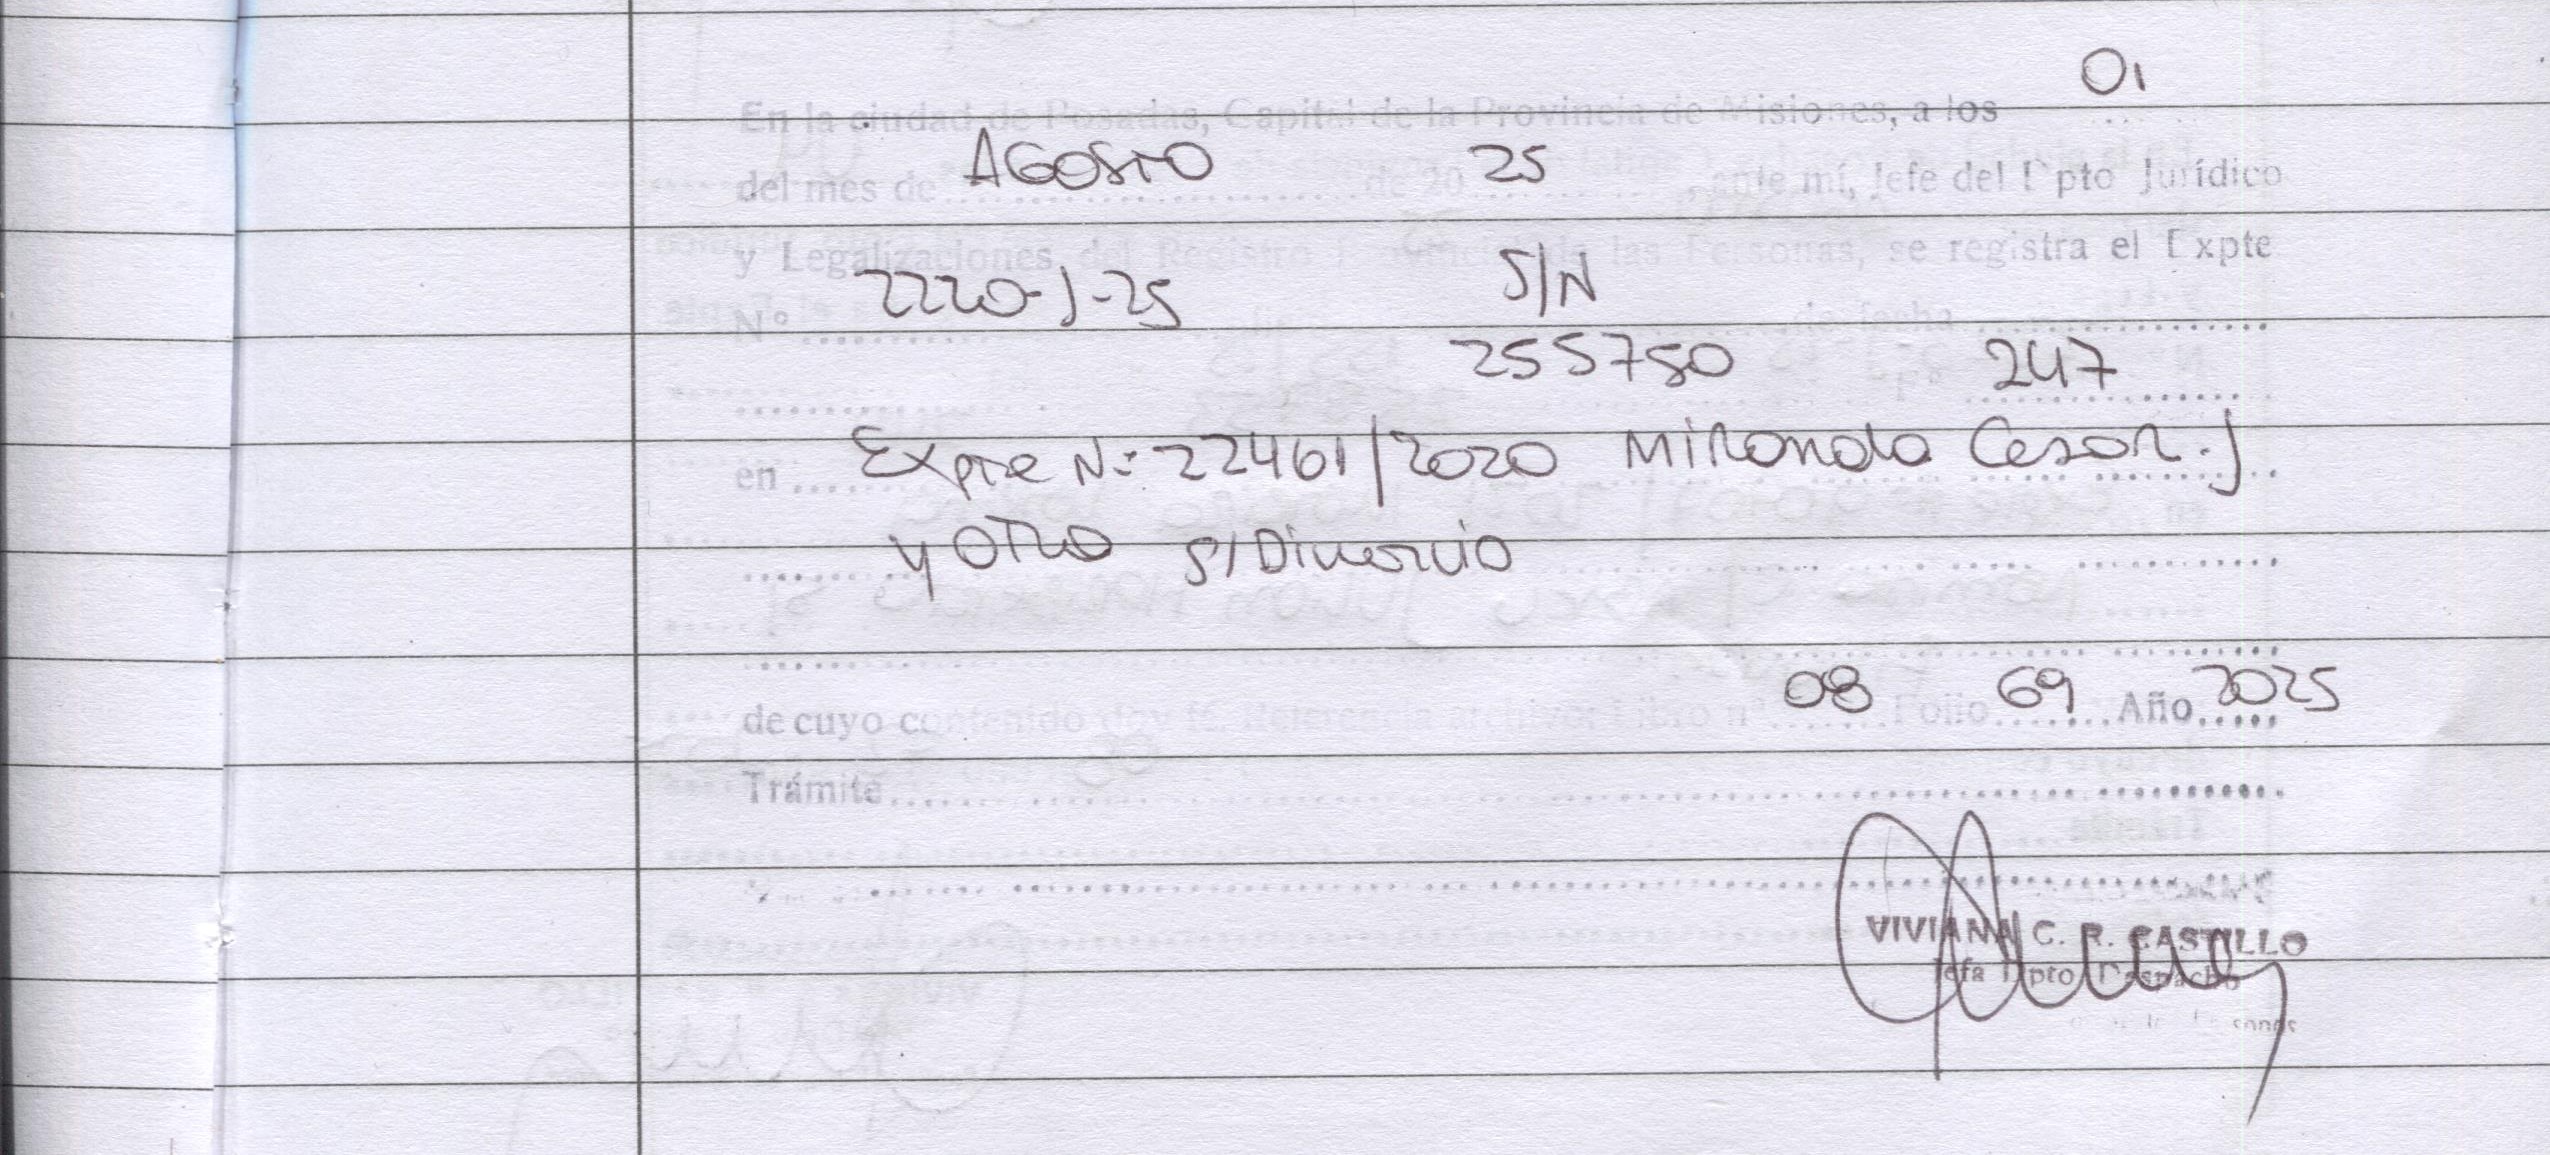 01
En la ciudad de Posadas, Capital de la Provincia de Misiones, a los
AGOSTO 25
del mes de de 20 , ante mí, Jefe del Dpto Jurídico
y Legalizaciones del Registro Provincial de las Personas, se registra el Expte
2220-J-25 S/N
N° de fecha
255750 247
en Expte N: 22461/2020 Miranda Cesar. J
y OTRO S/Divorcio
08 69 2025
de cuyo contenido doy fé. Libro n° Folio Año
Trámite
VIVIANA C. R. CASTILLO
Jefa Dpto Despacho